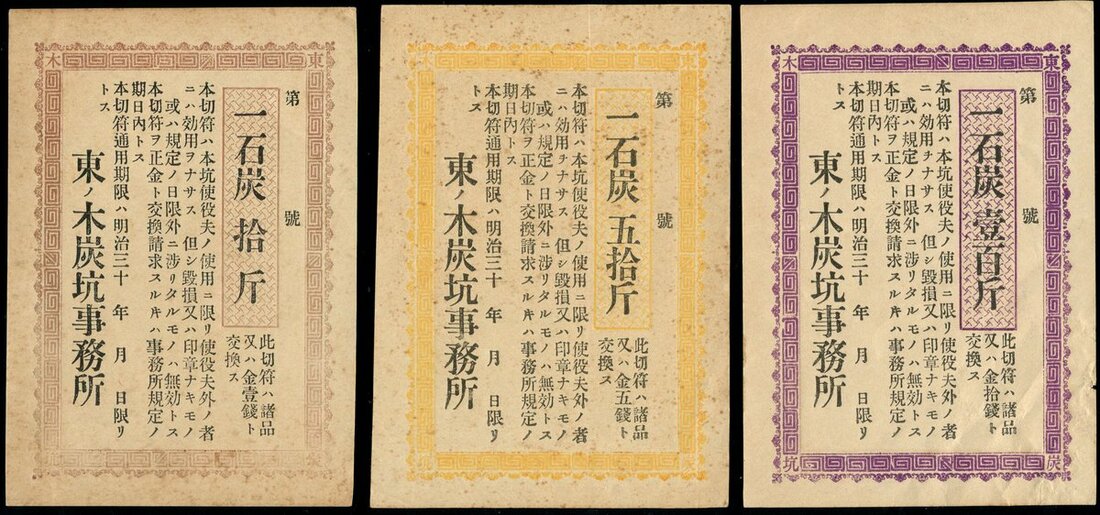 東
木
第 號
一石炭拾斤
此切符ハ諸品
又ハ金壹錢ト
交換ス
本切符ハ本坑使役夫ノ使用ニ限リ使役夫外ノ者
ニハ効用ヲナサス 但シ毀損又ハ印章ナキモノ
或ハ規定ノ日限外ニ涉リタルモノハ無効トス
本切符ヲ正金ト交換請求スルキハ事務所規定ノ
期日內トス
本切符通用期限ハ明治三十 年 月 日限リ
トス
東ノ木炭坑事務所
東
木
第 號
一石炭五拾斤
此切符ハ諸品
又ハ金五錢ト
交換ス
本切符ハ本坑使役夫ノ使用ニ限リ使役夫外ノ者
ニハ効用ヲナサス 但シ毀損又ハ印章ナキモノ
或ハ規定ノ日限外ニ涉リタルモノハ無効トス
本切符ヲ正金ト交換請求スルキハ事務所規定ノ
期日內トス
本切符通用期限ハ明治三十 年 月 日限リ
トス
東ノ木炭坑事務所
東
木
第 號
一石炭壹百斤
此切符ハ諸品
又ハ金拾錢ト
交換ス
本切符ハ本坑使役夫ノ使用ニ限リ使役夫外ノ者
ニハ効用ヲナサス 但シ毀損又ハ印章ナキモノ
或ハ規定ノ日限外ニ涉リタルモノハ無効トス
本切符ヲ正金ト交換請求スルキハ事務所規定ノ
期日內トス
本切符通用期限ハ明治三十 年 月 日限リ
トス
東ノ木炭坑事務所
炭
坑